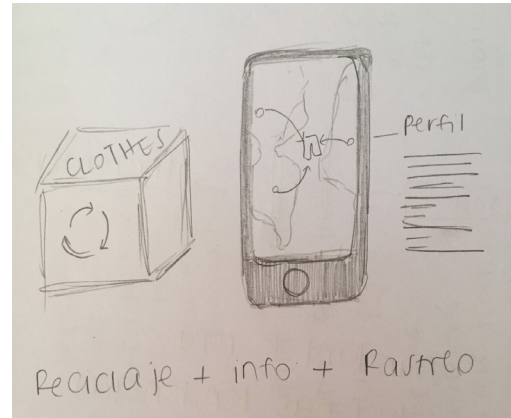 CLOTHES
Perfil
Reciclaje + info + Rastreo